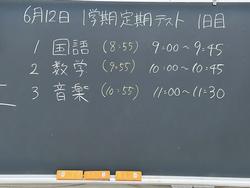 6月12日 1学期定期テスト 1日目
1 国語 (8:55) 9:00〜9:45
2 数学 (9:55) 10:00〜10:45
3 音楽 (10:55) 11:00〜11:30